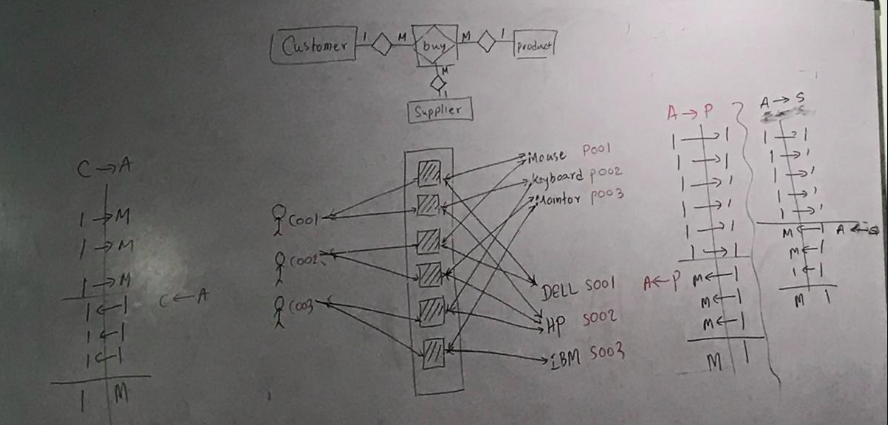 Customer 1 M buy M 1 product
M
1
Supplier
C → A
1 → M
1 → M
1 → M
C ← A
1 ← 1
1 ← 1
1 ← 1
1 M
C001
C002
C003
Mouse P001
Keyboard P002
Monitor P003
DELL S001
HP S002
IBM S003
A → P
1 → 1
1 → 1
1 → 1
1 → 1
1 → 1
1 → 1
A ← P
M ← 1
M ← 1
M ← 1
M 1
A → S
1 → 1
1 → 1
1 → 1
1 → 1
1 → 1
M ← 1 A ← S
M ← 1
1 ← 1
M 1